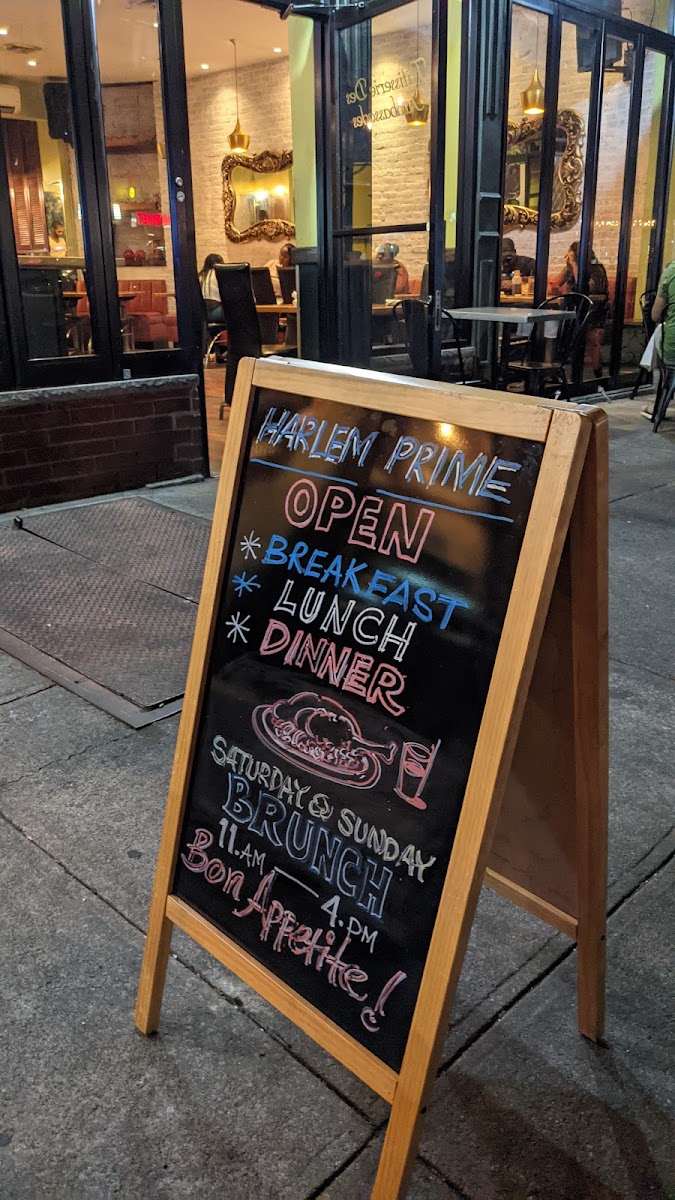 Patisserie Des
Ambassades
HARLEM PRIME
OPEN
* BREAKFAST
* LUNCH
* DINNER
SATURDAY & SUNDAY
BRUNCH
11.AM — 4.PM
Bon Appetite!